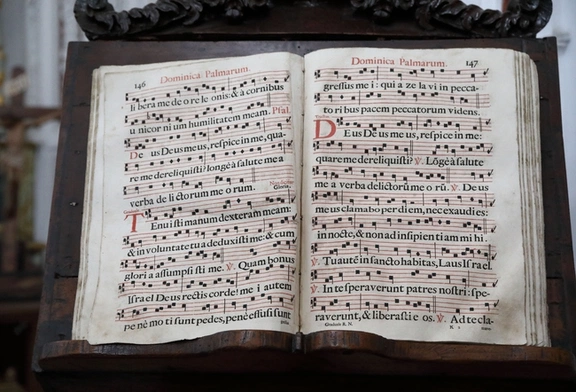 146 Dominica Palmarum.
libera me de ore leonis: & à cornibus
unicornium humilitatem meam. Psal.
De us Deus meus, respice in me, qua-
re me dereliquisti? longè à salute mea
verba delictorum meorum.
Gloria.
Tenuisti manum dexteram meam:
& in voluntate tua deduxisti me: & cum
gloria assumpsisti me. ℣. Quam bonus
Israel Deus rectis corde! me i autem
penè moti sunt pedes, penè effusi sunt
Dominica Palmarum. 147
gressus mei: quia zelavi in pecca-
toribus pacem peccatorum videns.
DEus Deus meus, respice in me:
quare me dereliquisti? ℣. Lõgè à salute
mea verba delictorum meorũ. ℣. Deus
meus clamabo per diem, nec exaudies:
in nocte, & non ad insipientiam mihi.
℣. Tu autẽ in sancto habitas, Laus Israel.
℣. In te speraverunt patres nostri: spe-
raverunt, & liberasti eos. ℣. Ad te cla-